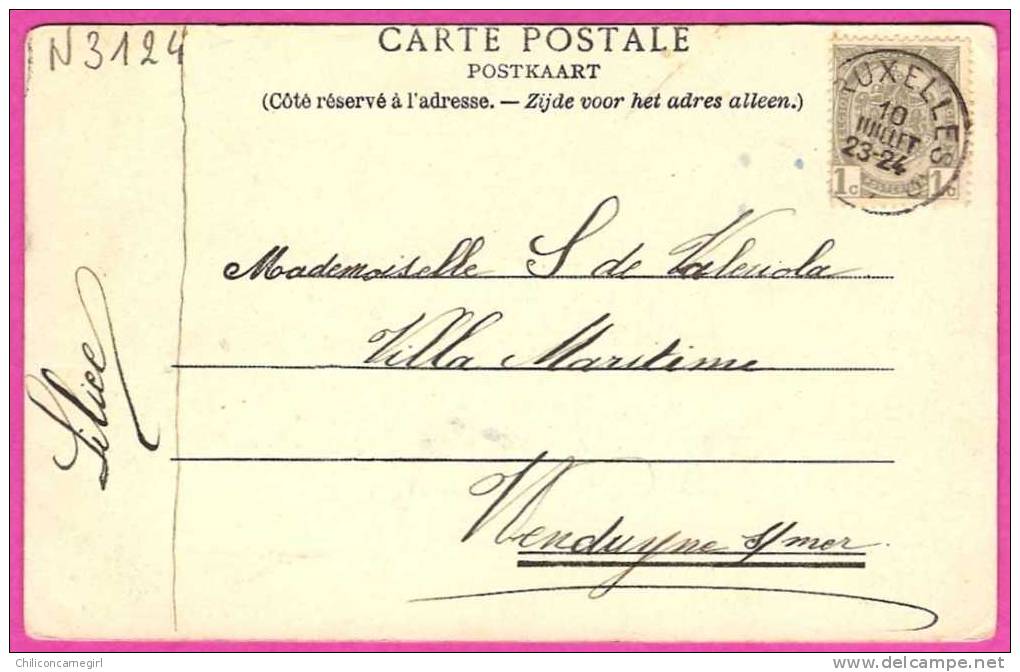 N 3124
CARTE POSTALE
POSTKAART
(Côté réservé à l'adresse. — Zijde voor het adres alleen.)
UXELLES
10
JUILLET
23-24
1c 1c
Mademoiselle S de Valeriola
Villa Maritime
Wenduyne s/mer
Chiliconcamegirl
www.delcampe.net